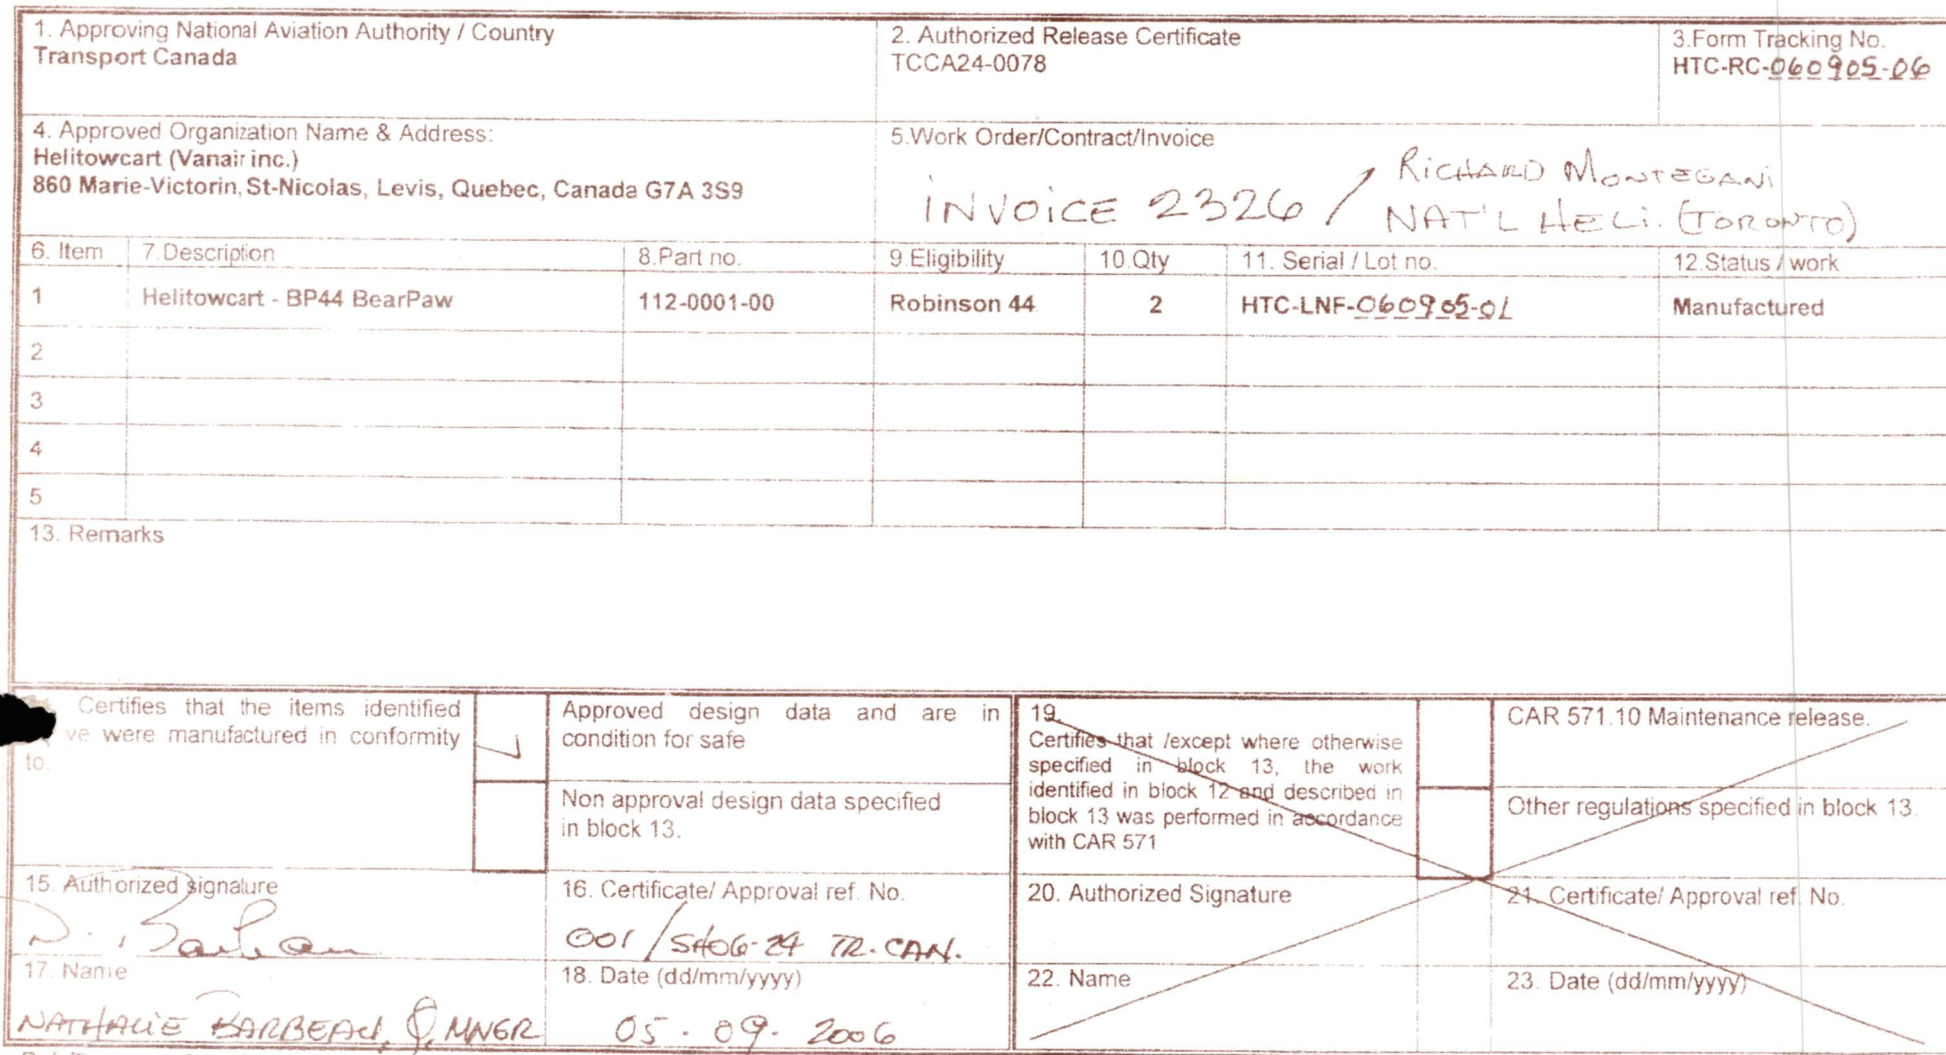 1. Approving National Aviation Authority / Country
Transport Canada
2. Authorized Release Certificate
TCCA24-0078
3.Form Tracking No.
HTC-RC-060905-06
4. Approved Organization Name & Address:
Helitowcart (Vanair inc.)
860 Marie-Victorin, St-Nicolas, Levis, Quebec, Canada G7A 3S9
5.Work Order/Contract/Invoice
INVOICE 2326 / RICHARD MONTEGANI
NAT'L HELI. (TORONTO)
6. Item 7.Description 8.Part no. 9.Eligibility 10.Qty 11. Serial / Lot no. 12.Status / work
1 Helitowcart - BP44 BearPaw 112-0001-00 Robinson 44 2 HTC-LNF-060905-01 Manufactured
2
3
4
5
13. Remarks
Certifies that the items identified
ve were manufactured in conformity
to.
Approved design data and are in
condition for safe
Non approval design data specified
in block 13.
19.
Certifies that /except where otherwise
specified in block 13, the work
identified in block 12 and described in
block 13 was performed in accordance
with CAR 571
CAR 571.10 Maintenance release.
Other regulations specified in block 13.
15. Authorized signature
16. Certificate/ Approval ref. No.
001/SH06-24 TR. CAN.
20. Authorized Signature
21. Certificate/ Approval ref. No.
17. Name
NATHALIE BARBEAU, Q. MNGR
18. Date (dd/mm/yyyy)
05. 09. 2006
22. Name
23. Date (dd/mm/yyyy)